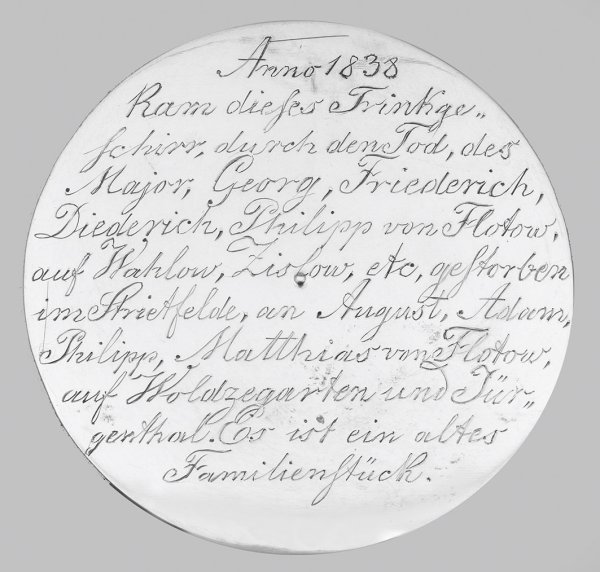 Anno 1838
Kam dieſes Trinkge„
ſchirr, durch den Tod, des
Major, Georg, Friederich,
Diederich, Philipp von Flotow,
auf Wahlow, Zislow, etc, geſtorben
im Strietfelde, an August, Adam,
Philipp, Matthias von Flotow,
auf Woldzegarten und Jür„
genthal. Es ist ein altes
Familienſtück.